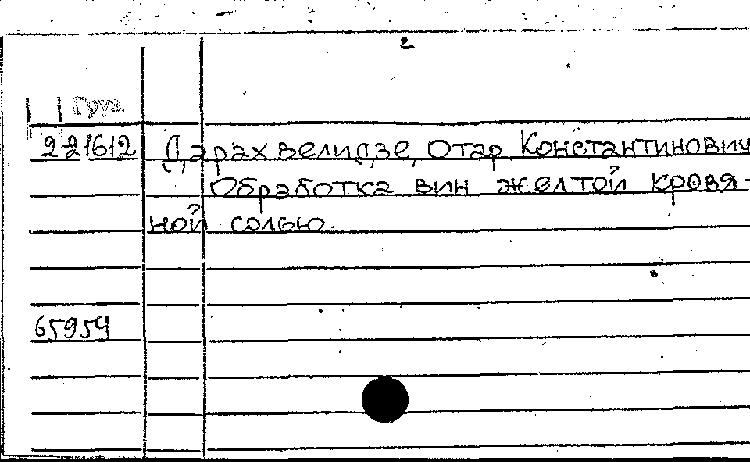 2
Груз.
221612 Дарахвелидзе, Отар Константинович
Обработка вин желтой кровя-
ной солью.
65959